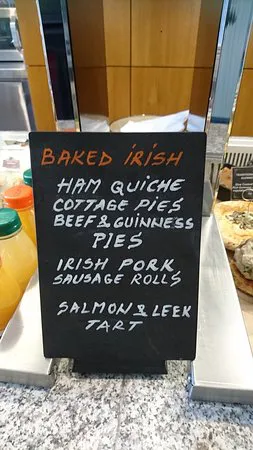 BAKED IRISH
HAM QUICHE
COTTAGE PIES
BEEF & GUINNESS
PIES
IRISH PORK
SAUSAGE ROLLS
SALMON & LEEK
TART